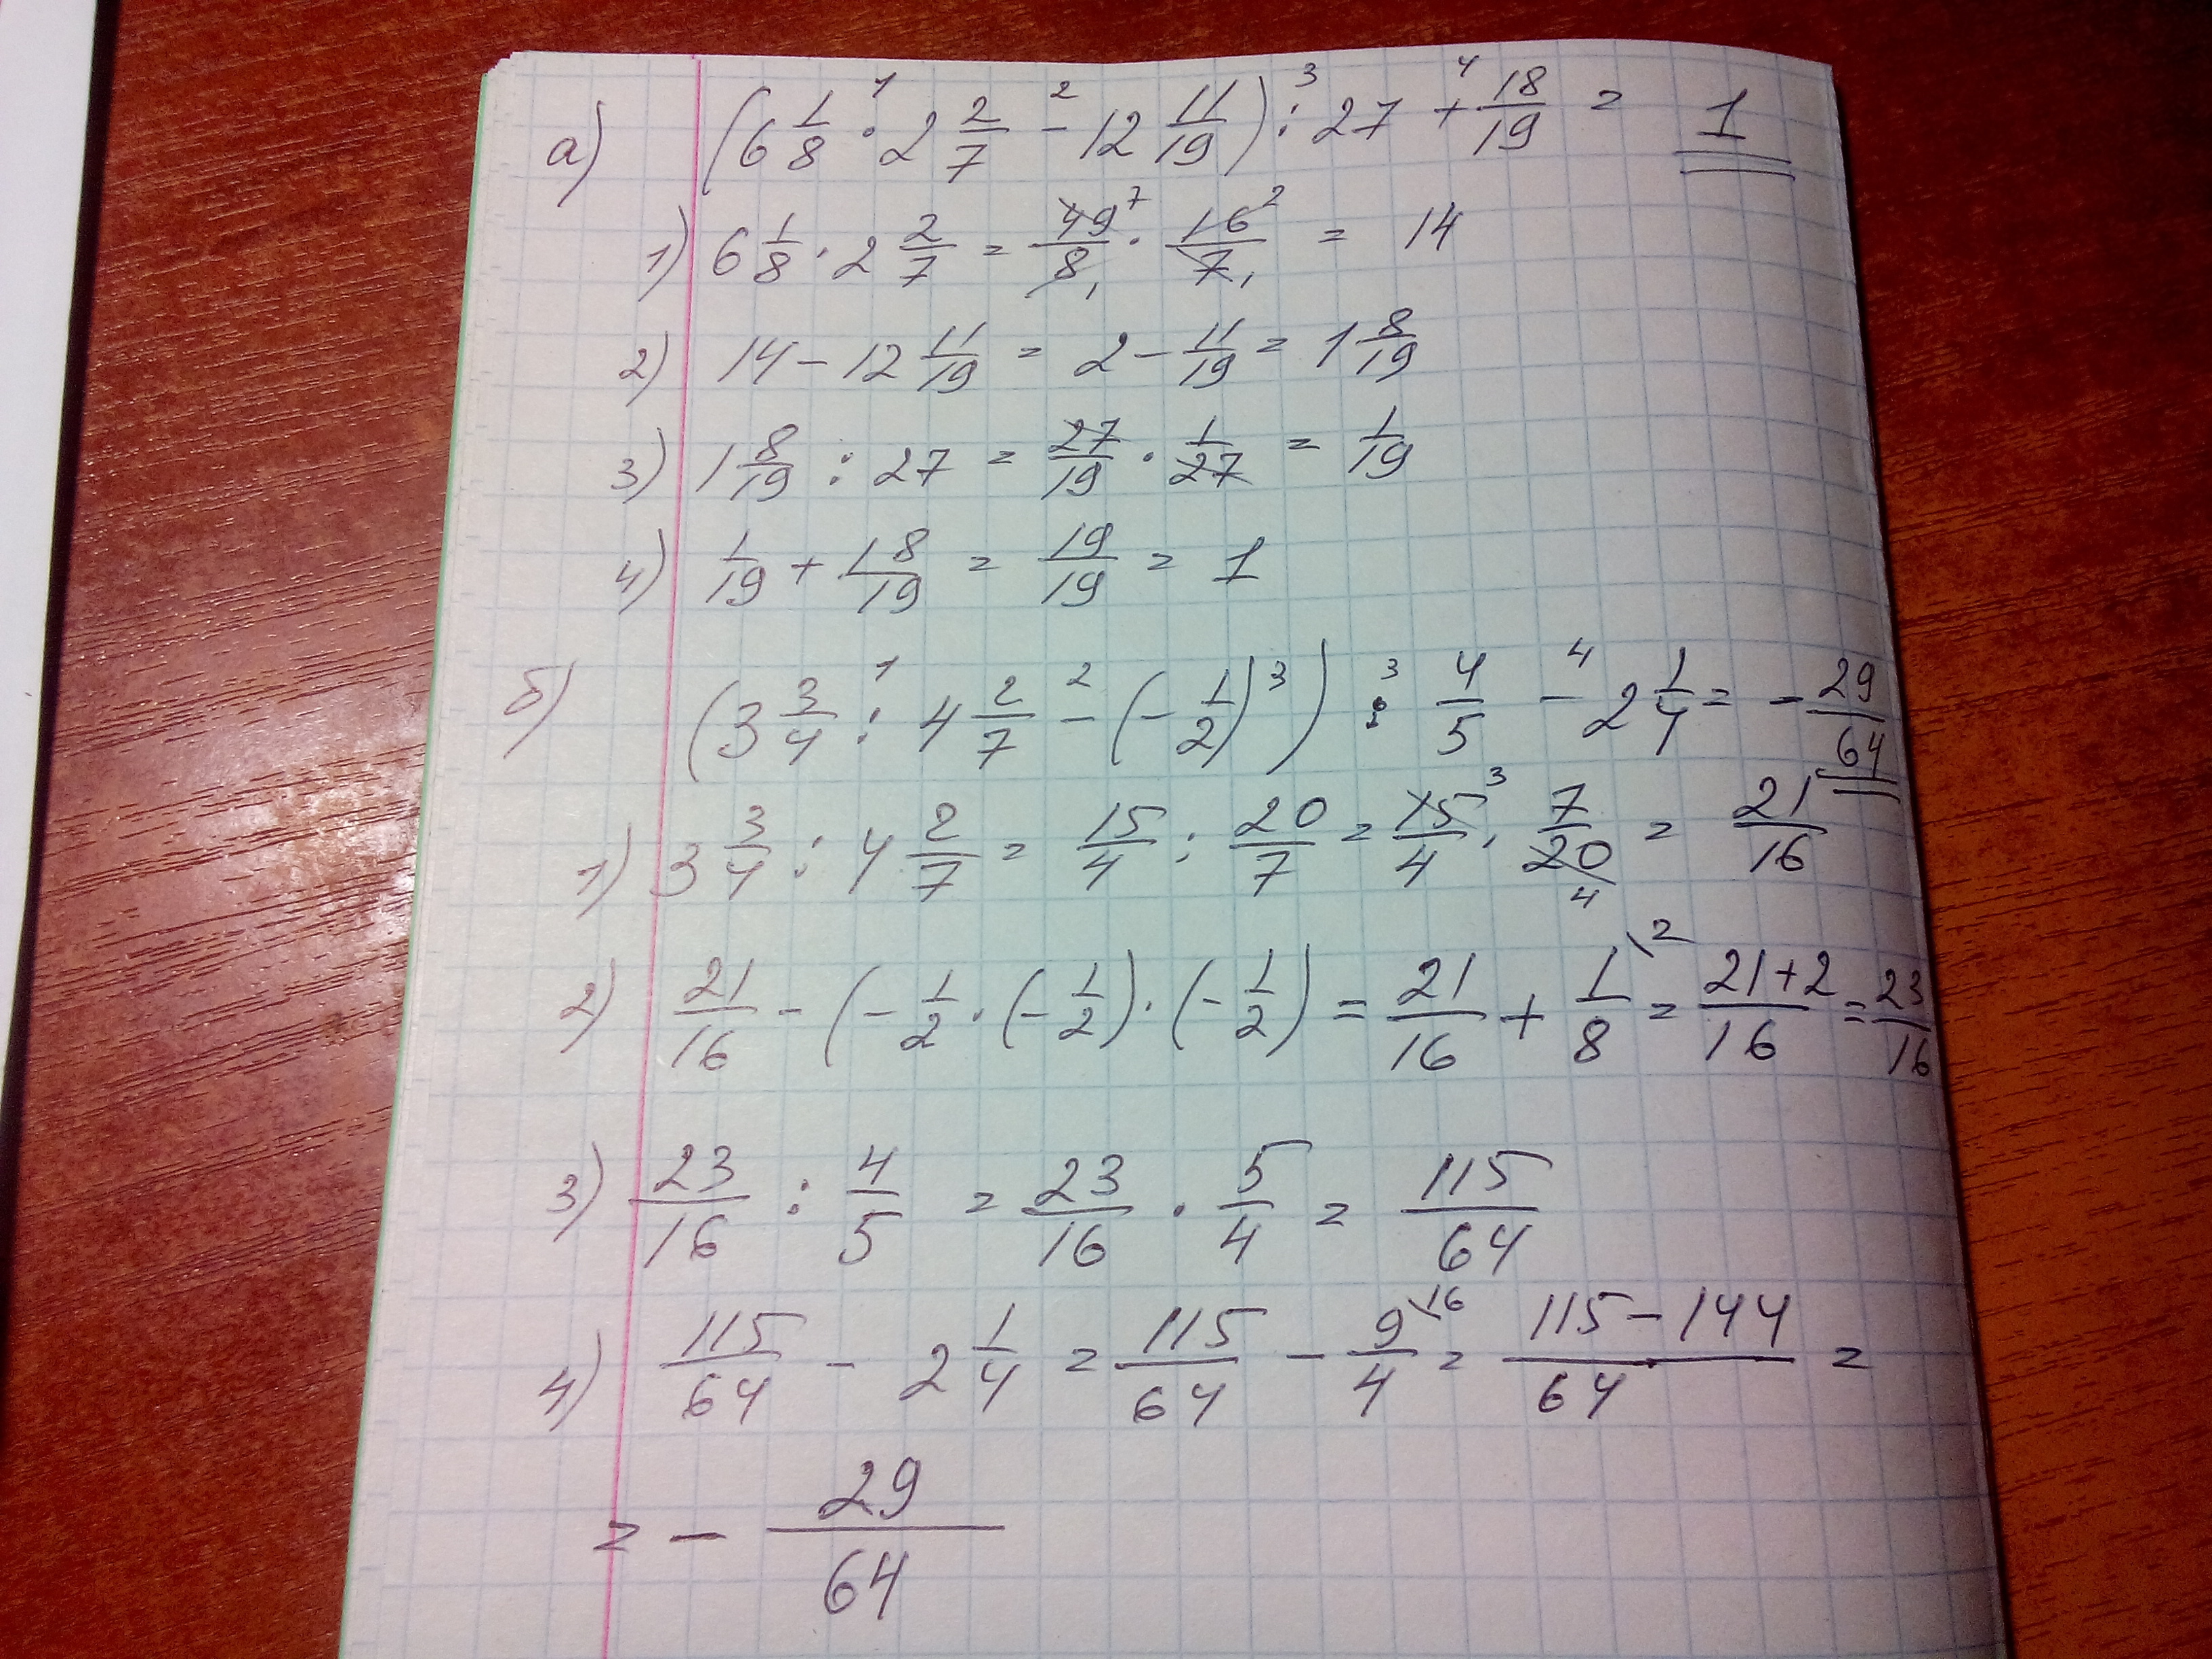 а) (6 1/8 · 2 2/7 - 12 11/19) : 27 + 18/19 = 1
1) 6 1/8 · 2 2/7 = 49/8 · 16/7 = 14
2) 14 - 12 11/19 = 2 - 11/19 = 1 8/19
3) 1 8/19 : 27 = 27/19 · 1/27 = 1/19
4) 1/19 + 18/19 = 19/19 = 1
б) (3 3/4 : 4 2/7 - (-1/2)³) : 4/5 - 2 1/4 = -29/64
1) 3 3/4 : 4 2/7 = 15/4 : 20/7 = 15/4 · 7/20 = 21/16
2) 21/16 - (-1/2 · (-1/2) · (-1/2) = 21/16 + 1/8 = 21+2/16 = 23/16
3) 23/16 : 4/5 = 23/16 · 5/4 = 115/64
4) 115/64 - 2 1/4 = 115/64 - 9/4 = 115-144/64 =
= - 29/64